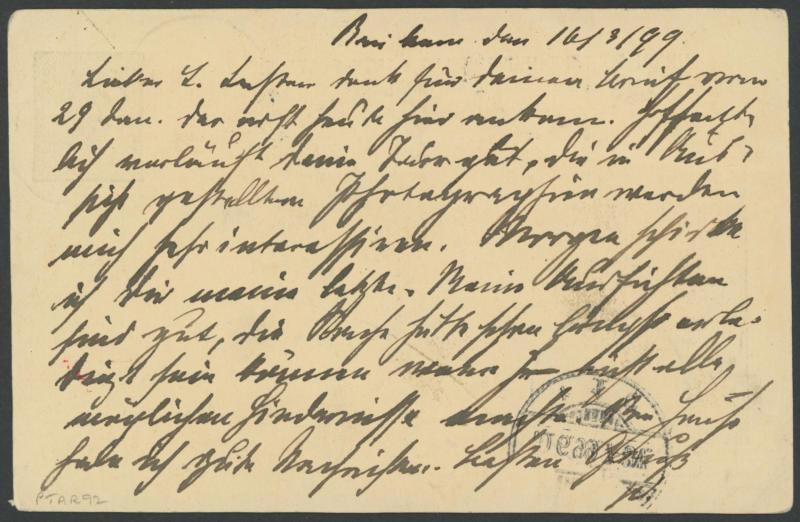 den 16/3/99.
Lieber L. Besten Dank für Deinen Brief vom
29 Jan. der erst heute hier ankam. Hoffent-
lich verläuft Deine Tour gut, die in Aus-
sicht gestellten Photographien werden
mich sehr interessiren. Morgen schicke
ich Dir meine letzte. Meine Aussichten
sind gut, die Sache hätte schon längst erle-
digt sein können wenn man nicht alle
möglichen Hindernisse machte. Von Haus
habe ich gute Nachrichten. Besten Gruß
PTAR92